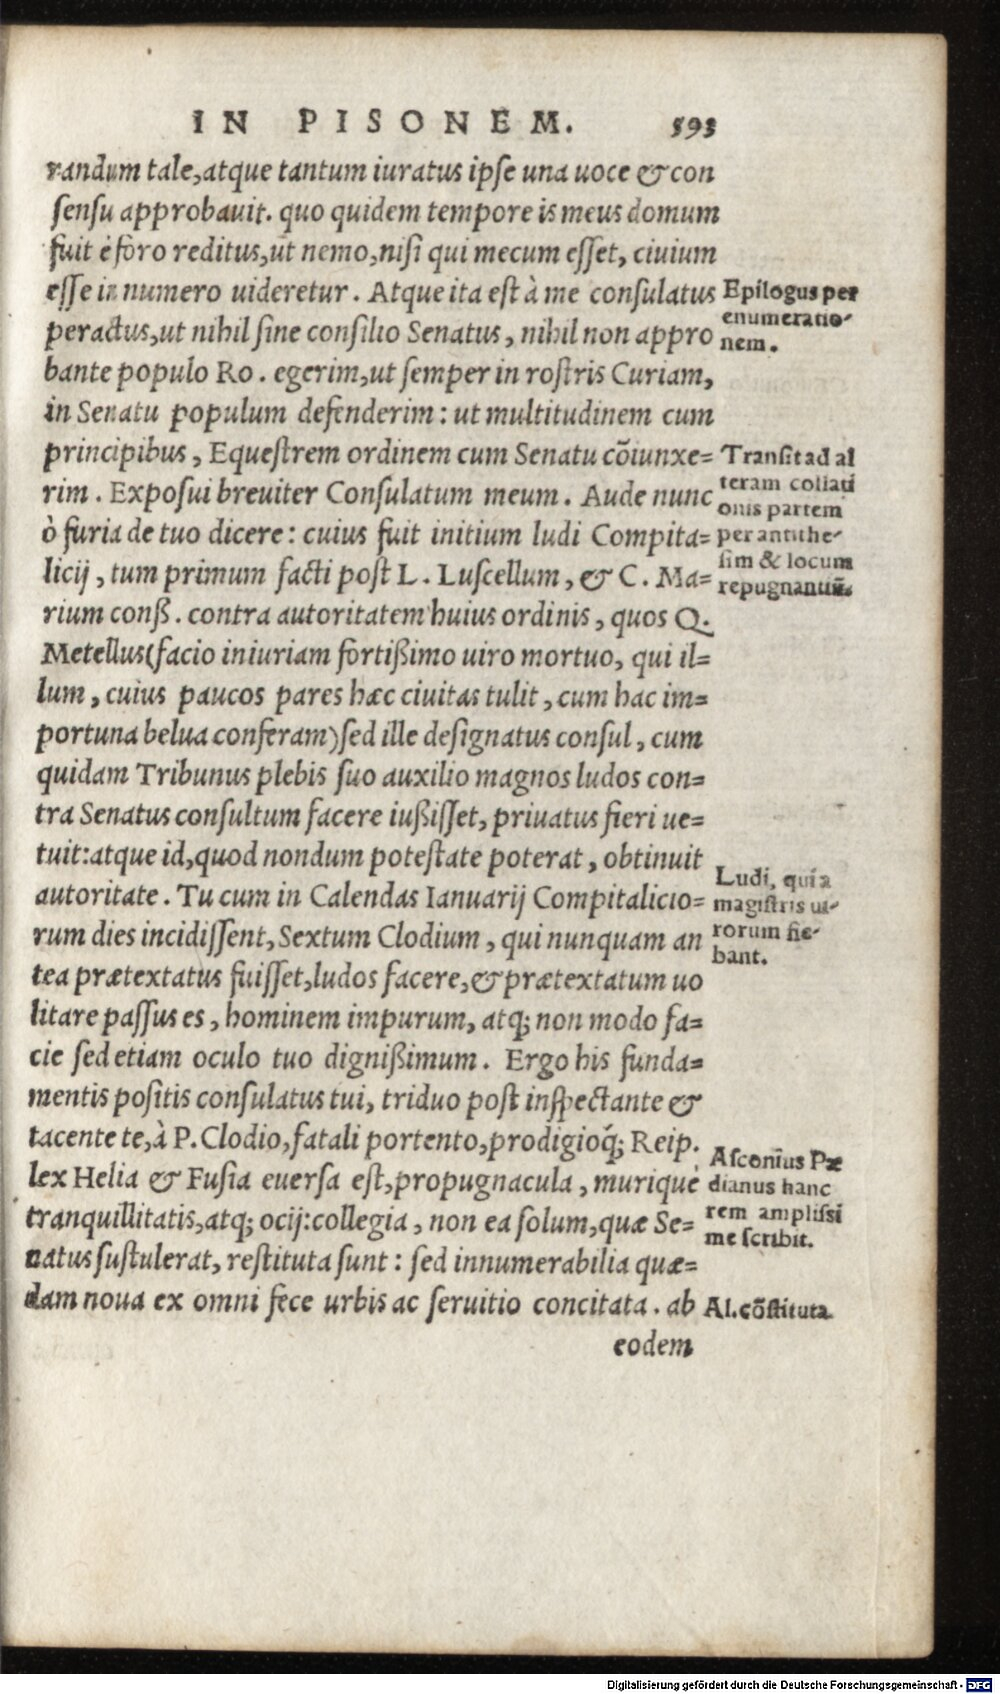 IN PISONEM. 593
randum tale, atque tantum iuratus ipse una uoce & con
sensu approbauit. quo quidem tempore is meus domum
fuit è foro reditus, ut nemo, nisi qui mecum esset, ciuium
esse in numero uideretur. Atque ita est à me consulatus
peractus, ut nihil sine consilio Senatus, nihil non appro
bante populo Ro. egerim, ut semper in rostris Curiam,
in Senatu populum defenderim: ut multitudinem cum
principibus, Equestrem ordinem cum Senatu cõiunxe=
rim. Exposui breuiter Consulatum meum. Aude nunc
ò furia de tuo dicere: cuius fuit initium ludi Compita=
licij, tum primum facti post L. Luscellum, & C. Ma=
rium conß. contra autoritatem huius ordinis, quos Q.
Metellus (facio iniuriam fortißimo uiro mortuo, qui il=
lum, cuius paucos pares hæc ciuitas tulit, cum hac im=
portuna belua conferam) sed ille designatus consul, cum
quidam Tribunus plebis suo auxilio magnos ludos con=
tra Senatus consultum facere iußisset, priuatus fieri ue=
tuit: atque id, quod nondum potestate poterat, obtinuit
autoritate. Tu cum in Calendas Ianuarij Compitalicio=
rum dies incidissent, Sextum Clodium, qui nunquam an
tea prætextatus fuisset, ludos facere, & prætextatum uo
litare passus es, hominem impurum, atq; non modo fa=
cie sed etiam oculo tuo dignißimum. Ergo his funda=
mentis positis consulatus tui, triduo post inspectante &
tacente te, à P. Clodio, fatali portento, prodigioq́; Reip.
lex Helia & Fusia euersa est, propugnacula, murique
tranquillitatis, atq; ocij: collegia, non ea solum, quæ Se=
natus sustulerat, restituta sunt: sed innumerabilia quæ=
dam noua ex omni fece urbis ac seruitio concitata. ab
eodem
Epilogus per
enumeratio-
nem.
Transit ad al
teram collati
onis partem
per antithe-
sim & locum
repugnantiũ.
Ludi, qui a
magistris ui-
rorum fie-
bant.
Asconius Pæ
dianus hanc
rem amplissi
me scribit.
Al. cõstituta.
Digitalisierung gefördert durch die Deutsche Forschungsgemeinschaft - DFG